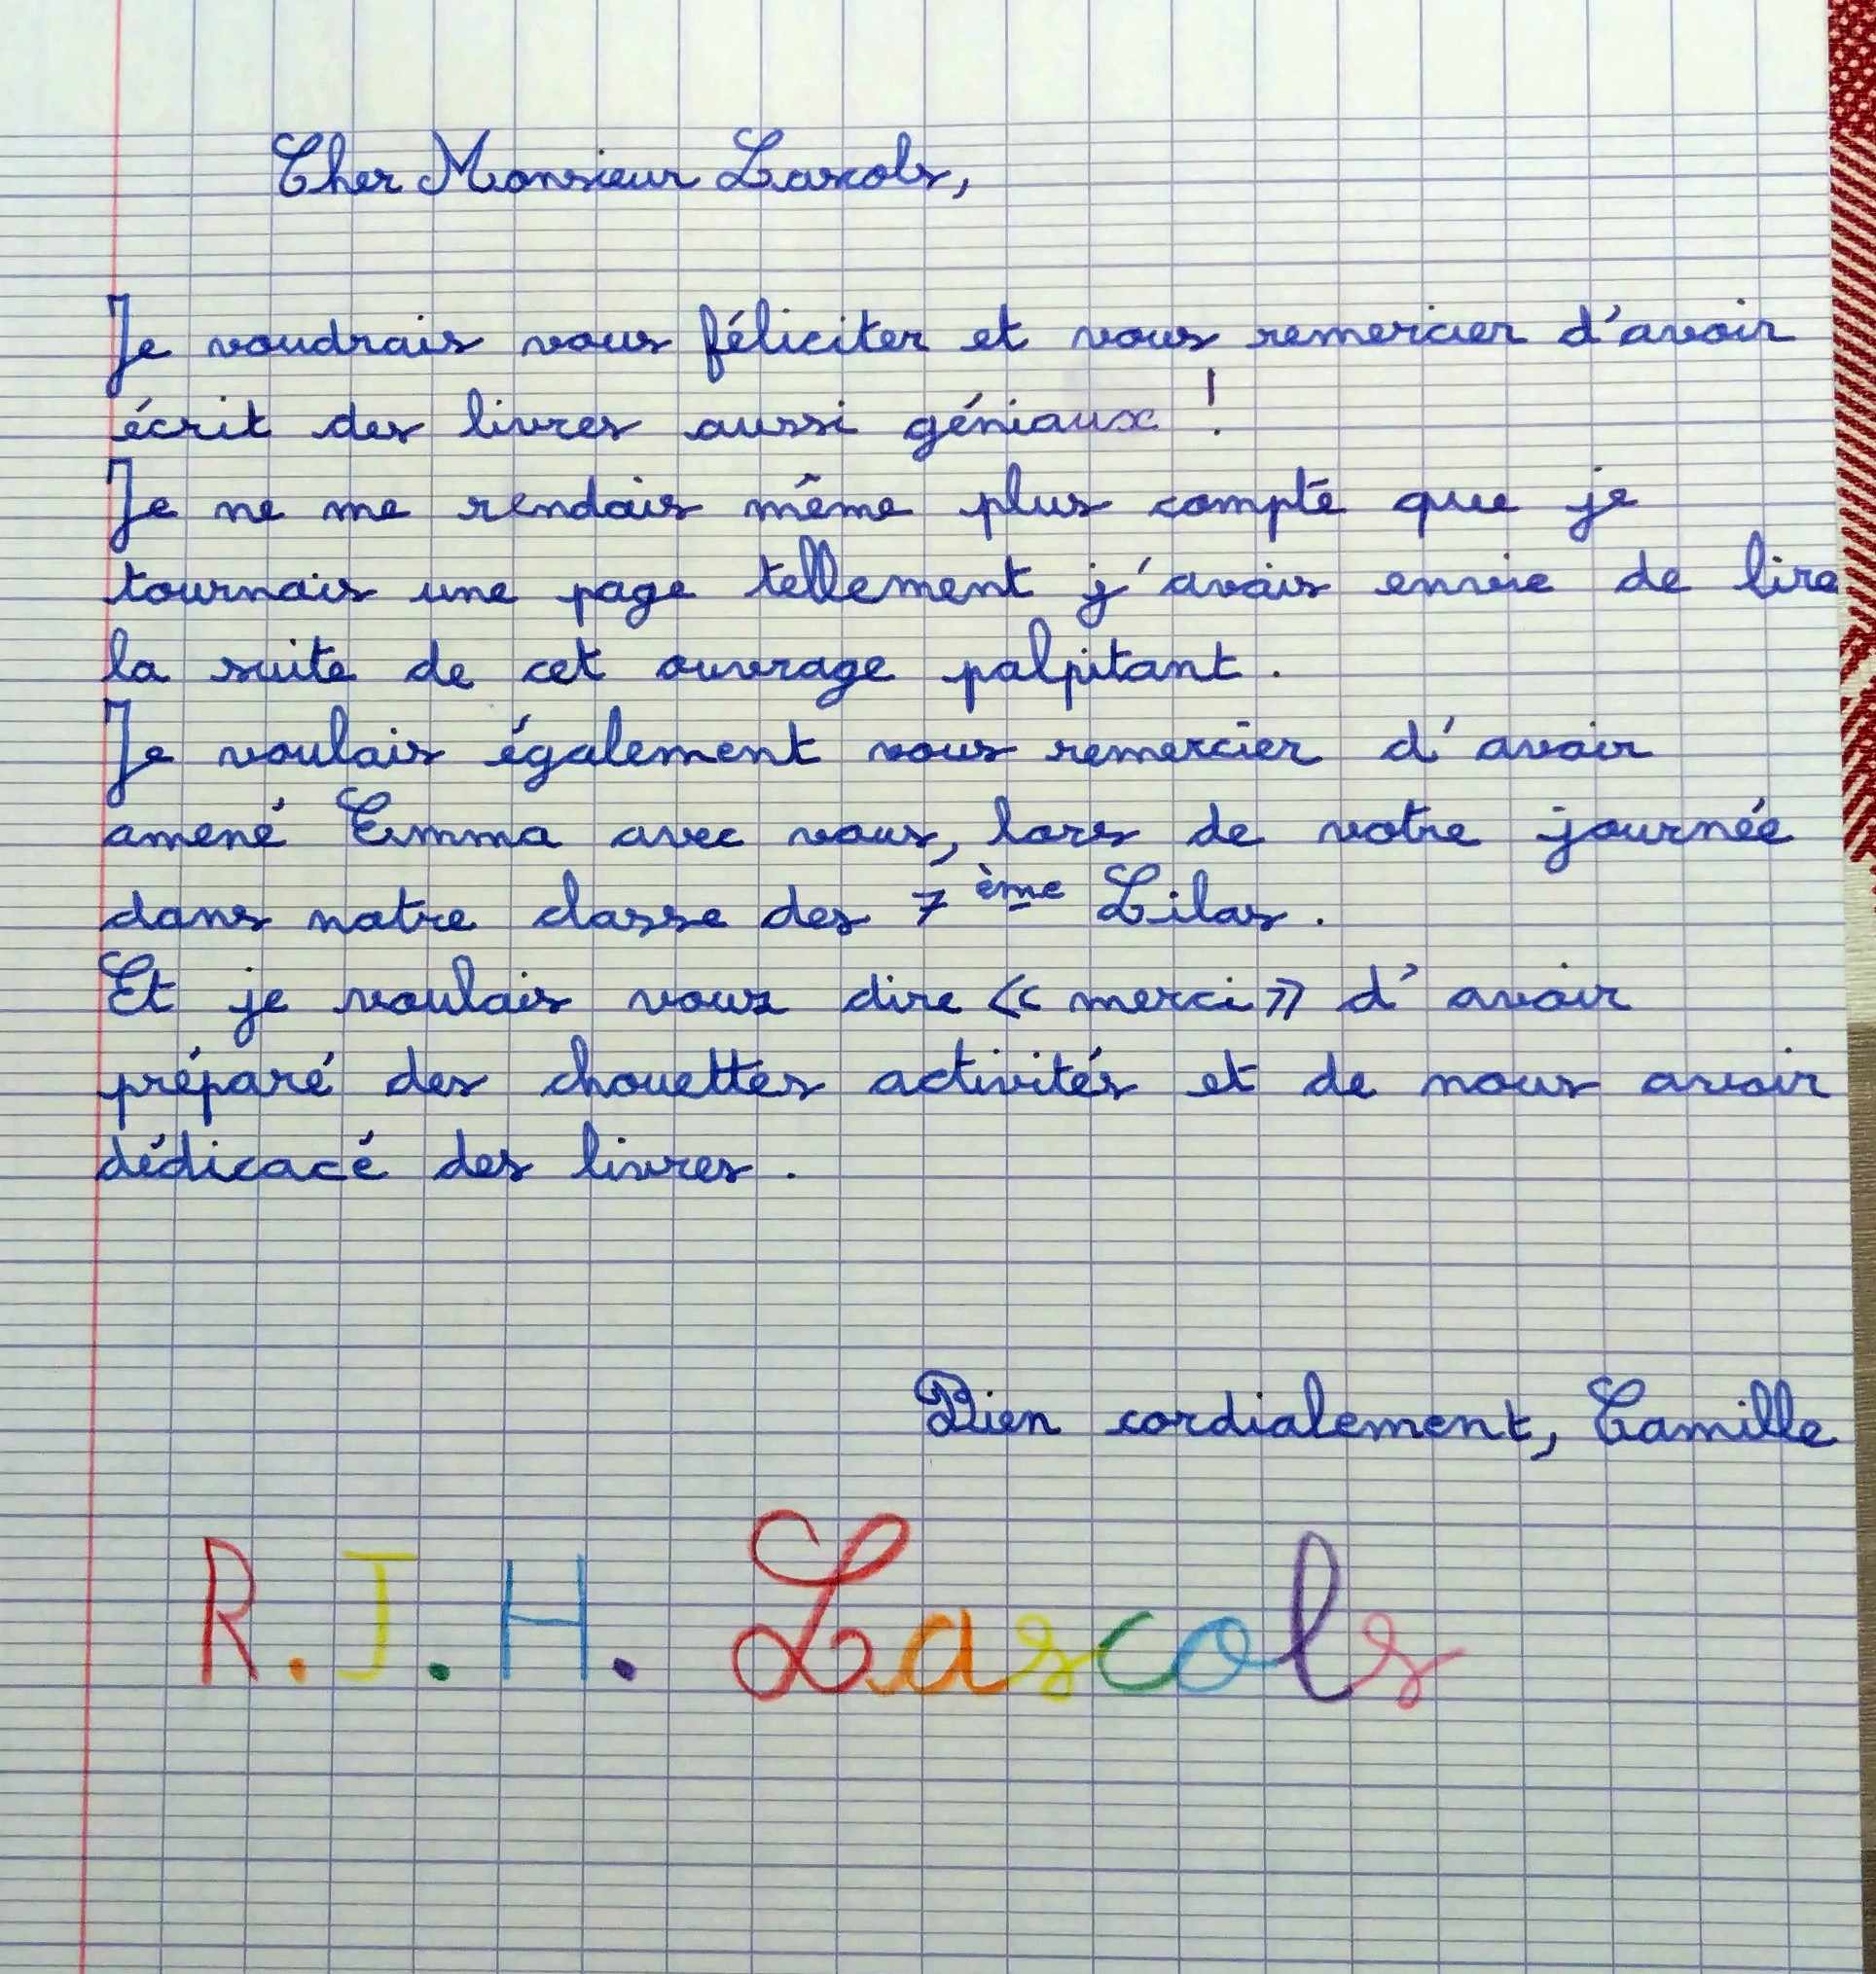 Cher Monsieur Lascols,
Je voudrais vous féliciter et vous remercier d'avoir
écrit des livres aussi géniaux !
Je ne me rendais même plus compte que je
tournais une page tellement j'avais envie de lire
la suite de cet ouvrage palpitant.
Je voulais également vous remercier d'avoir
amené Emma avec vous, lors de votre journée
dans notre classe des 7ème Lilas.
Et je voulais vous dire « merci » d'avoir
préparé des chouettes activités et de nous avoir
dédicacé des livres.
Bien cordialement, Camille
R.J.H. Lascols